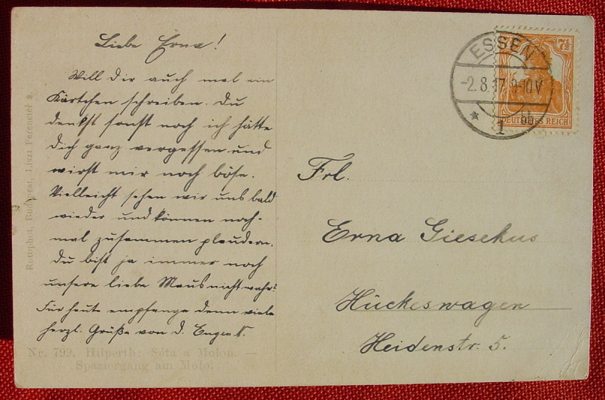 Liebe Erna!
Will dir auch mal ein
Kärtchen schreiben. Du
denkst sonst noch ich hätte
dich ganz vergessen und
wirst mir noch böse.
Vielleicht sehen wir uns bald
wieder und können noch-
mal zusammen plaudern.
Du bist ja immer noch
unsere liebe Maus nicht wahr?
Für heute empfange denn viele
herzl. Grüße von d.
Nr. 799. Hilperth:
Spaziergang am
ESSEN
-2.8.17. 9-10V
* 1
7½
DEUTSCHES REICH
Frl.
Erna Giesekus
Hückeswagen
Heidenstr. 5.